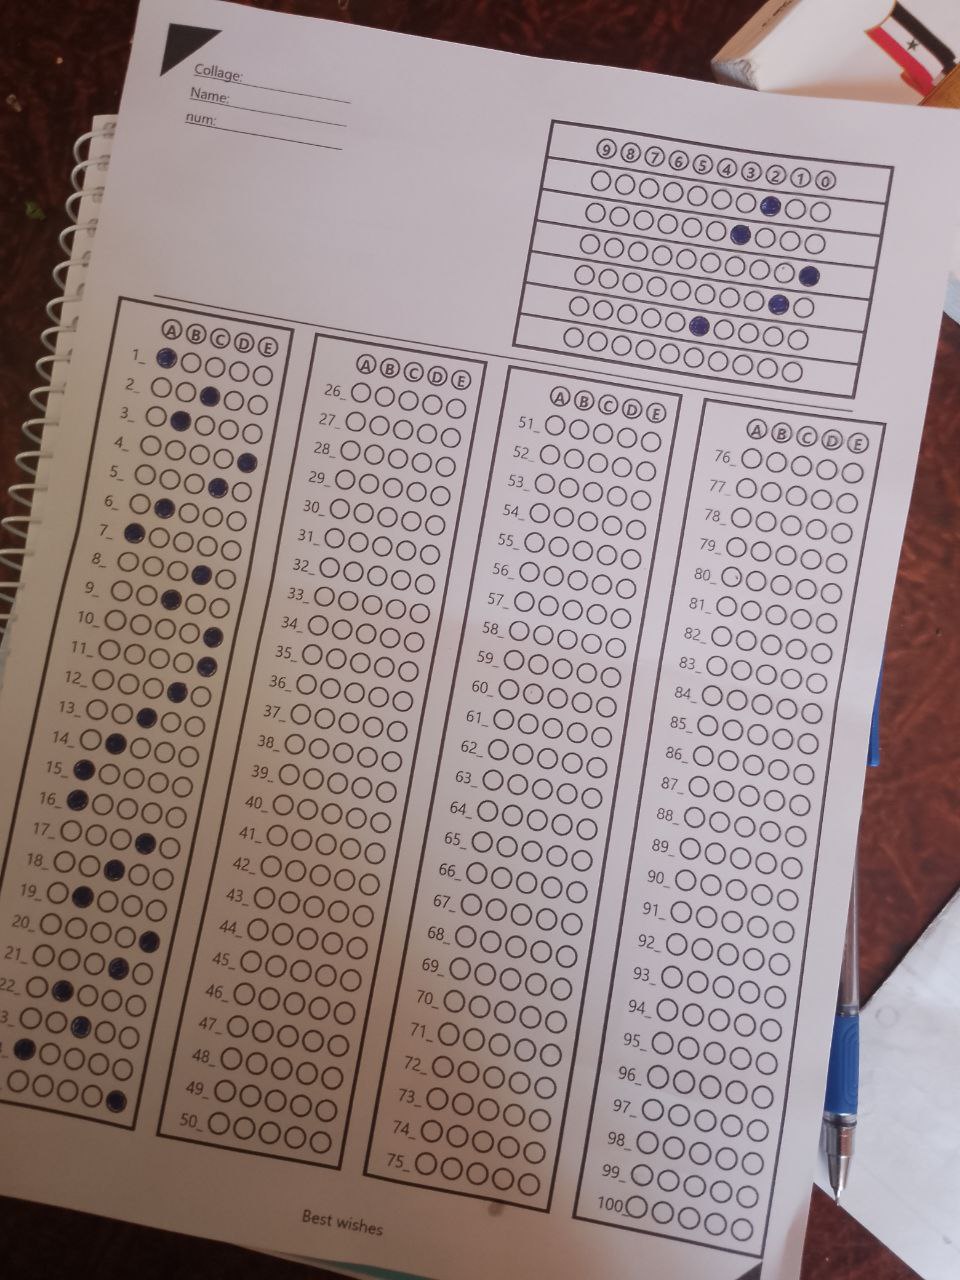 Collage:
Name:
num:
9 8 7 6 5 4 3 2 1 0
A B C D E
1_
2_
3_
4_
5_
6_
7_
8_
9_
10_
11_
12_
13_
14_
15_
16_
17_
18_
19_
20_
21_
22_
3_
A B C D E
26_
27_
28_
29_
30_
31_
32_
33_
34_
35_
36_
37_
38_
39_
40_
41_
42_
43_
44_
45_
46_
47_
48_
49_
50_
A B C D E
51_
52_
53_
54_
55_
56_
57_
58_
59_
60_
61_
62_
63_
64_
65_
66_
67_
68_
69_
70_
71_
72_
73_
74_
75_
A B C D E
76_
77_
78_
79_
80_
81_
82_
83_
84_
85_
86_
87_
88_
89_
90_
91_
92_
93_
94_
95_
96_
97_
98_
99_
100_
Best wishes